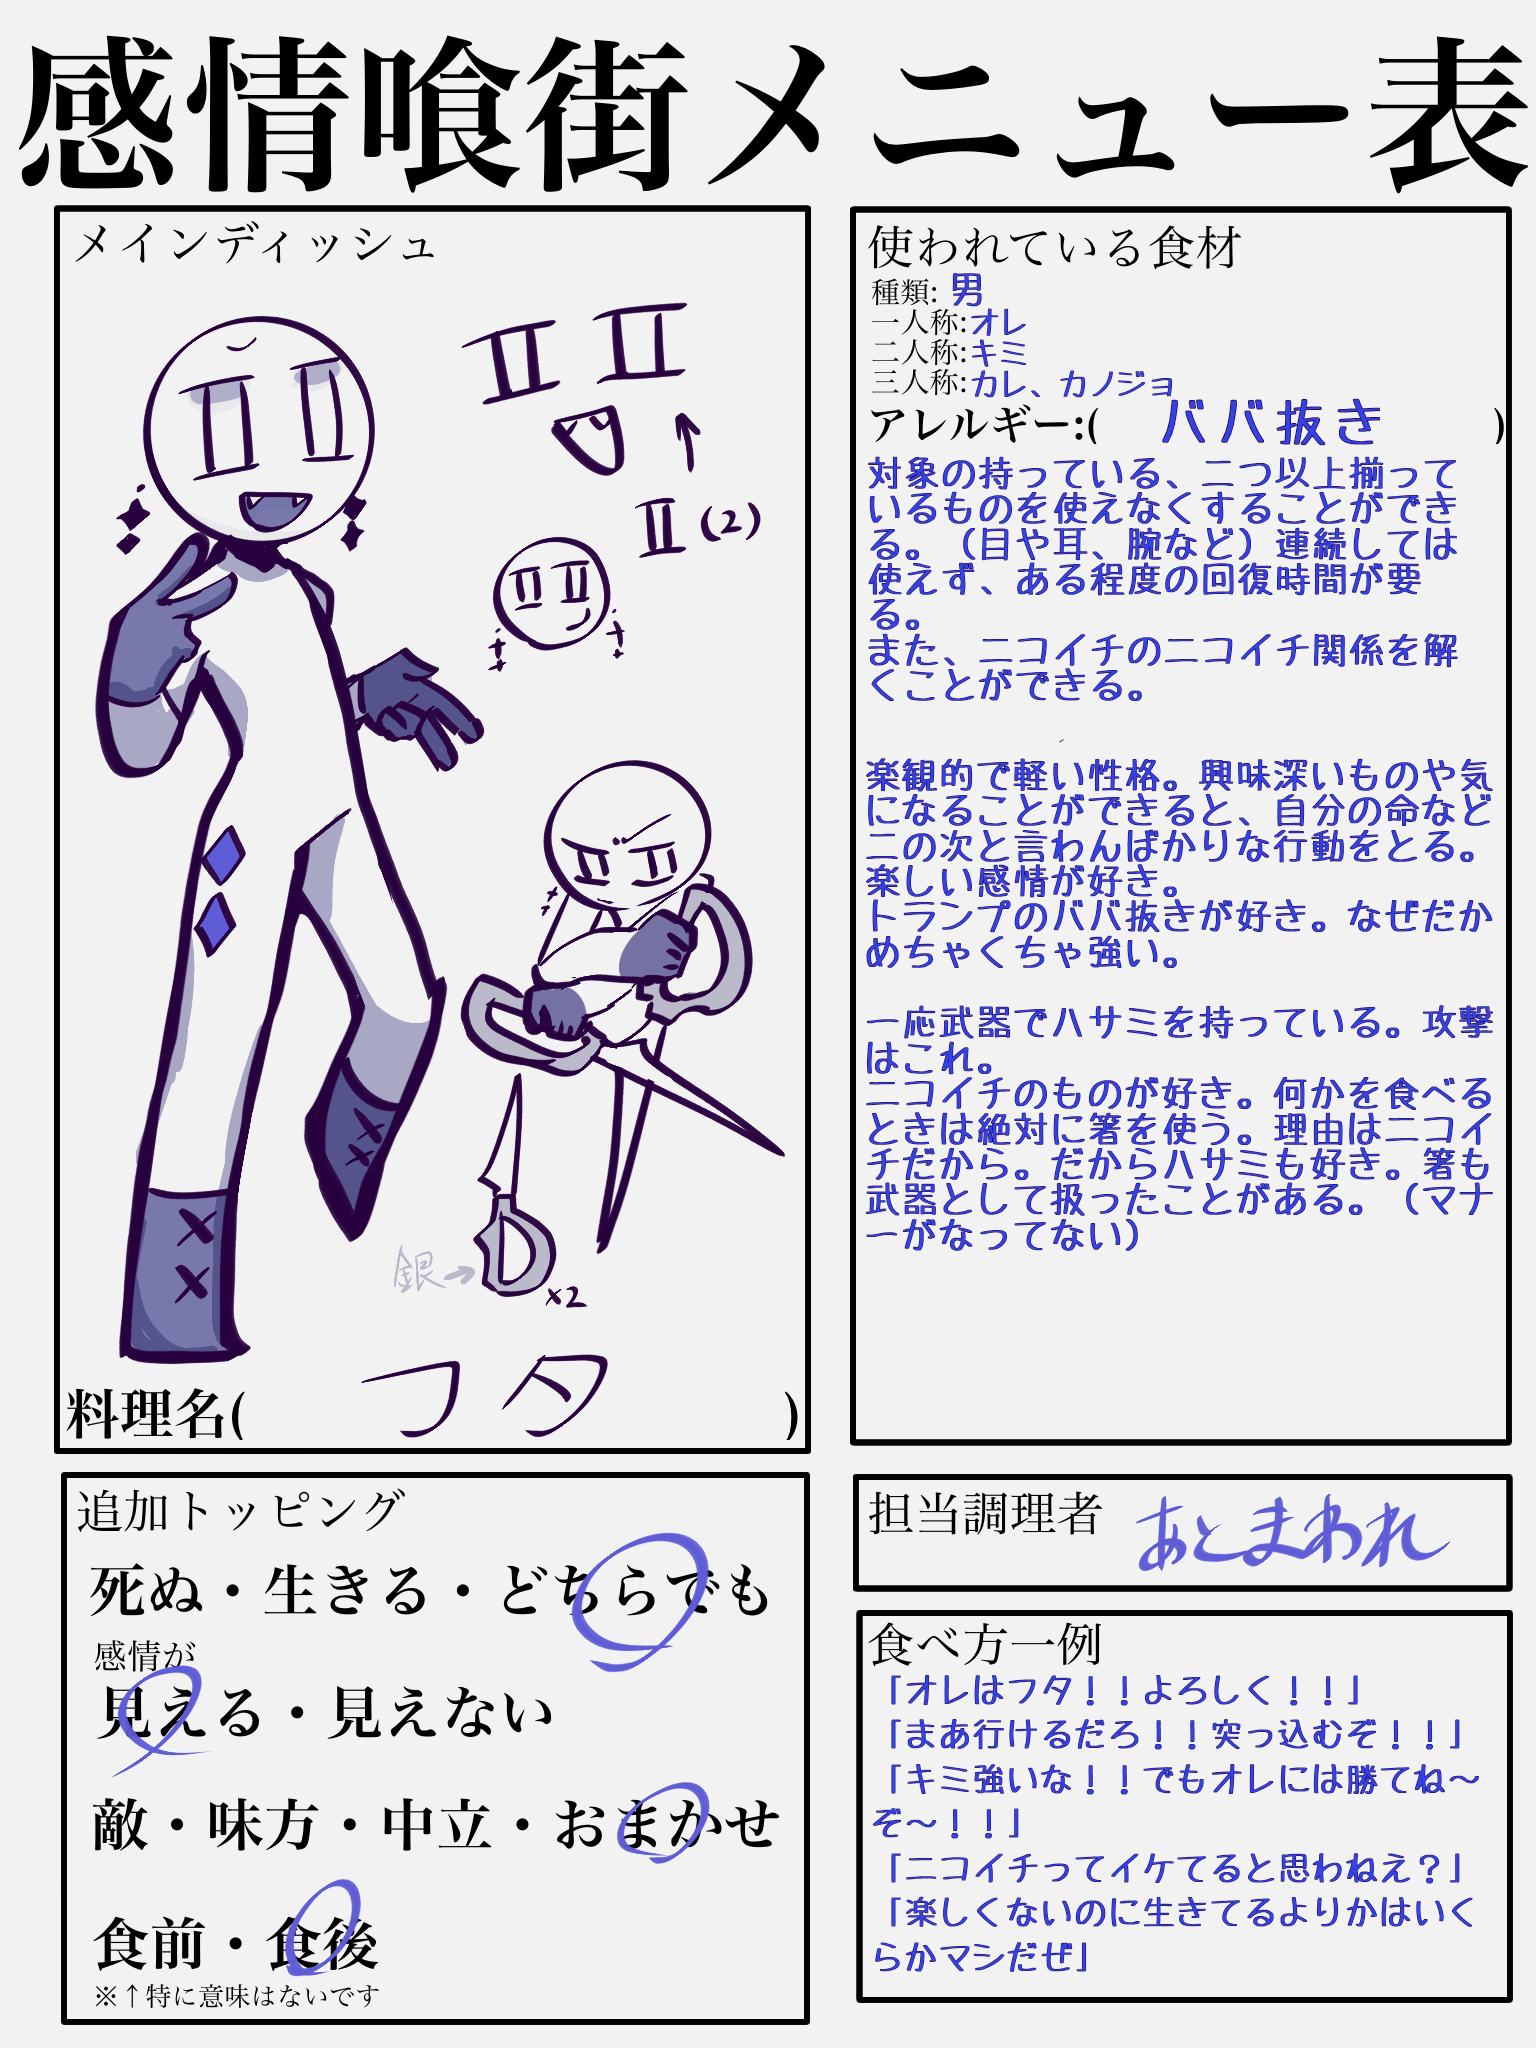 感情喰街メニュー表
メインディッシュ
II II
II (2)
銀→
×2
料理名( フタ )
使われている食材
種類: 男
一人称:オレ
二人称:キミ
三人称:カレ、カノジョ
アレルギー:( ババ抜き )
対象の持っている、二つ以上揃って
いるものを使えなくすることができ
る。(目や耳、腕など)連続しては
使えず、ある程度の回復時間が要
る。
また、ニコイチのニコイチ関係を解
くことができる。
楽観的で軽い性格。興味深いものや気
になることができると、自分の命など
二の次と言わんばかりな行動をとる。
楽しい感情が好き。
トランプのババ抜きが好き。なぜだか
めちゃくちゃ強い。
一応武器でハサミを持っている。攻撃
はこれ。
ニコイチのものが好き。何かを食べる
ときは絶対に箸を使う。理由はニコイ
チだから。だからハサミも好き。箸も
武器として扱ったことがある。(マナ
ーがなってない)
追加トッピング
死ぬ・生きる・どちらでも
感情が
見える・見えない
敵・味方・中立・おまかせ
食前・食後
※↑特に意味はないです
担当調理者 あとまわれ
食べ方一例
「オレはフタ！！よろしく！！」
「まあ行けるだろ！！突っ込むぞ！！」
「キミ強いな！！でもオレには勝てね〜
ぞ〜！！」
「ニコイチってイケてると思わねえ？」
「楽しくないのに生きてるよりかはいく
らかマシだぜ」